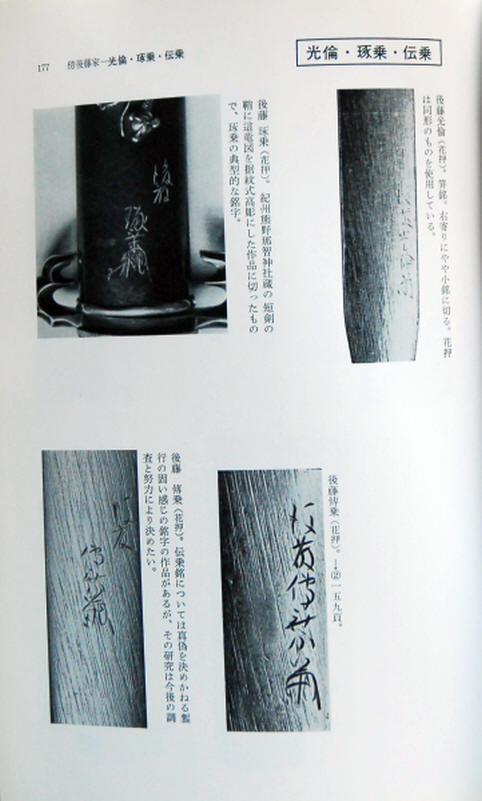 光倫・琢乗・伝乗
177 傍後藤家―光倫・琢乗・伝乗
後藤光倫(花押)。笄銘。右寄りにやや小銘に切る。花押
は同形のものを使用している。
後藤 琢乗(花押)。紀州熊野那智神社蔵の短剣の
鞘に這竜図を据紋式高彫にした作品に切ったもの
で、琢乗の典型的な銘字。
後藤傳乗(花押)。→②一五九頁。
後藤 傳乗(花押)。伝乗銘については真偽を決めかねる鏨
行の固い感じの銘字の作品があるが、その研究は今後の調
査と努力により決めたい。
後藤傳乗
後藤
傳乗
後藤
琢乗